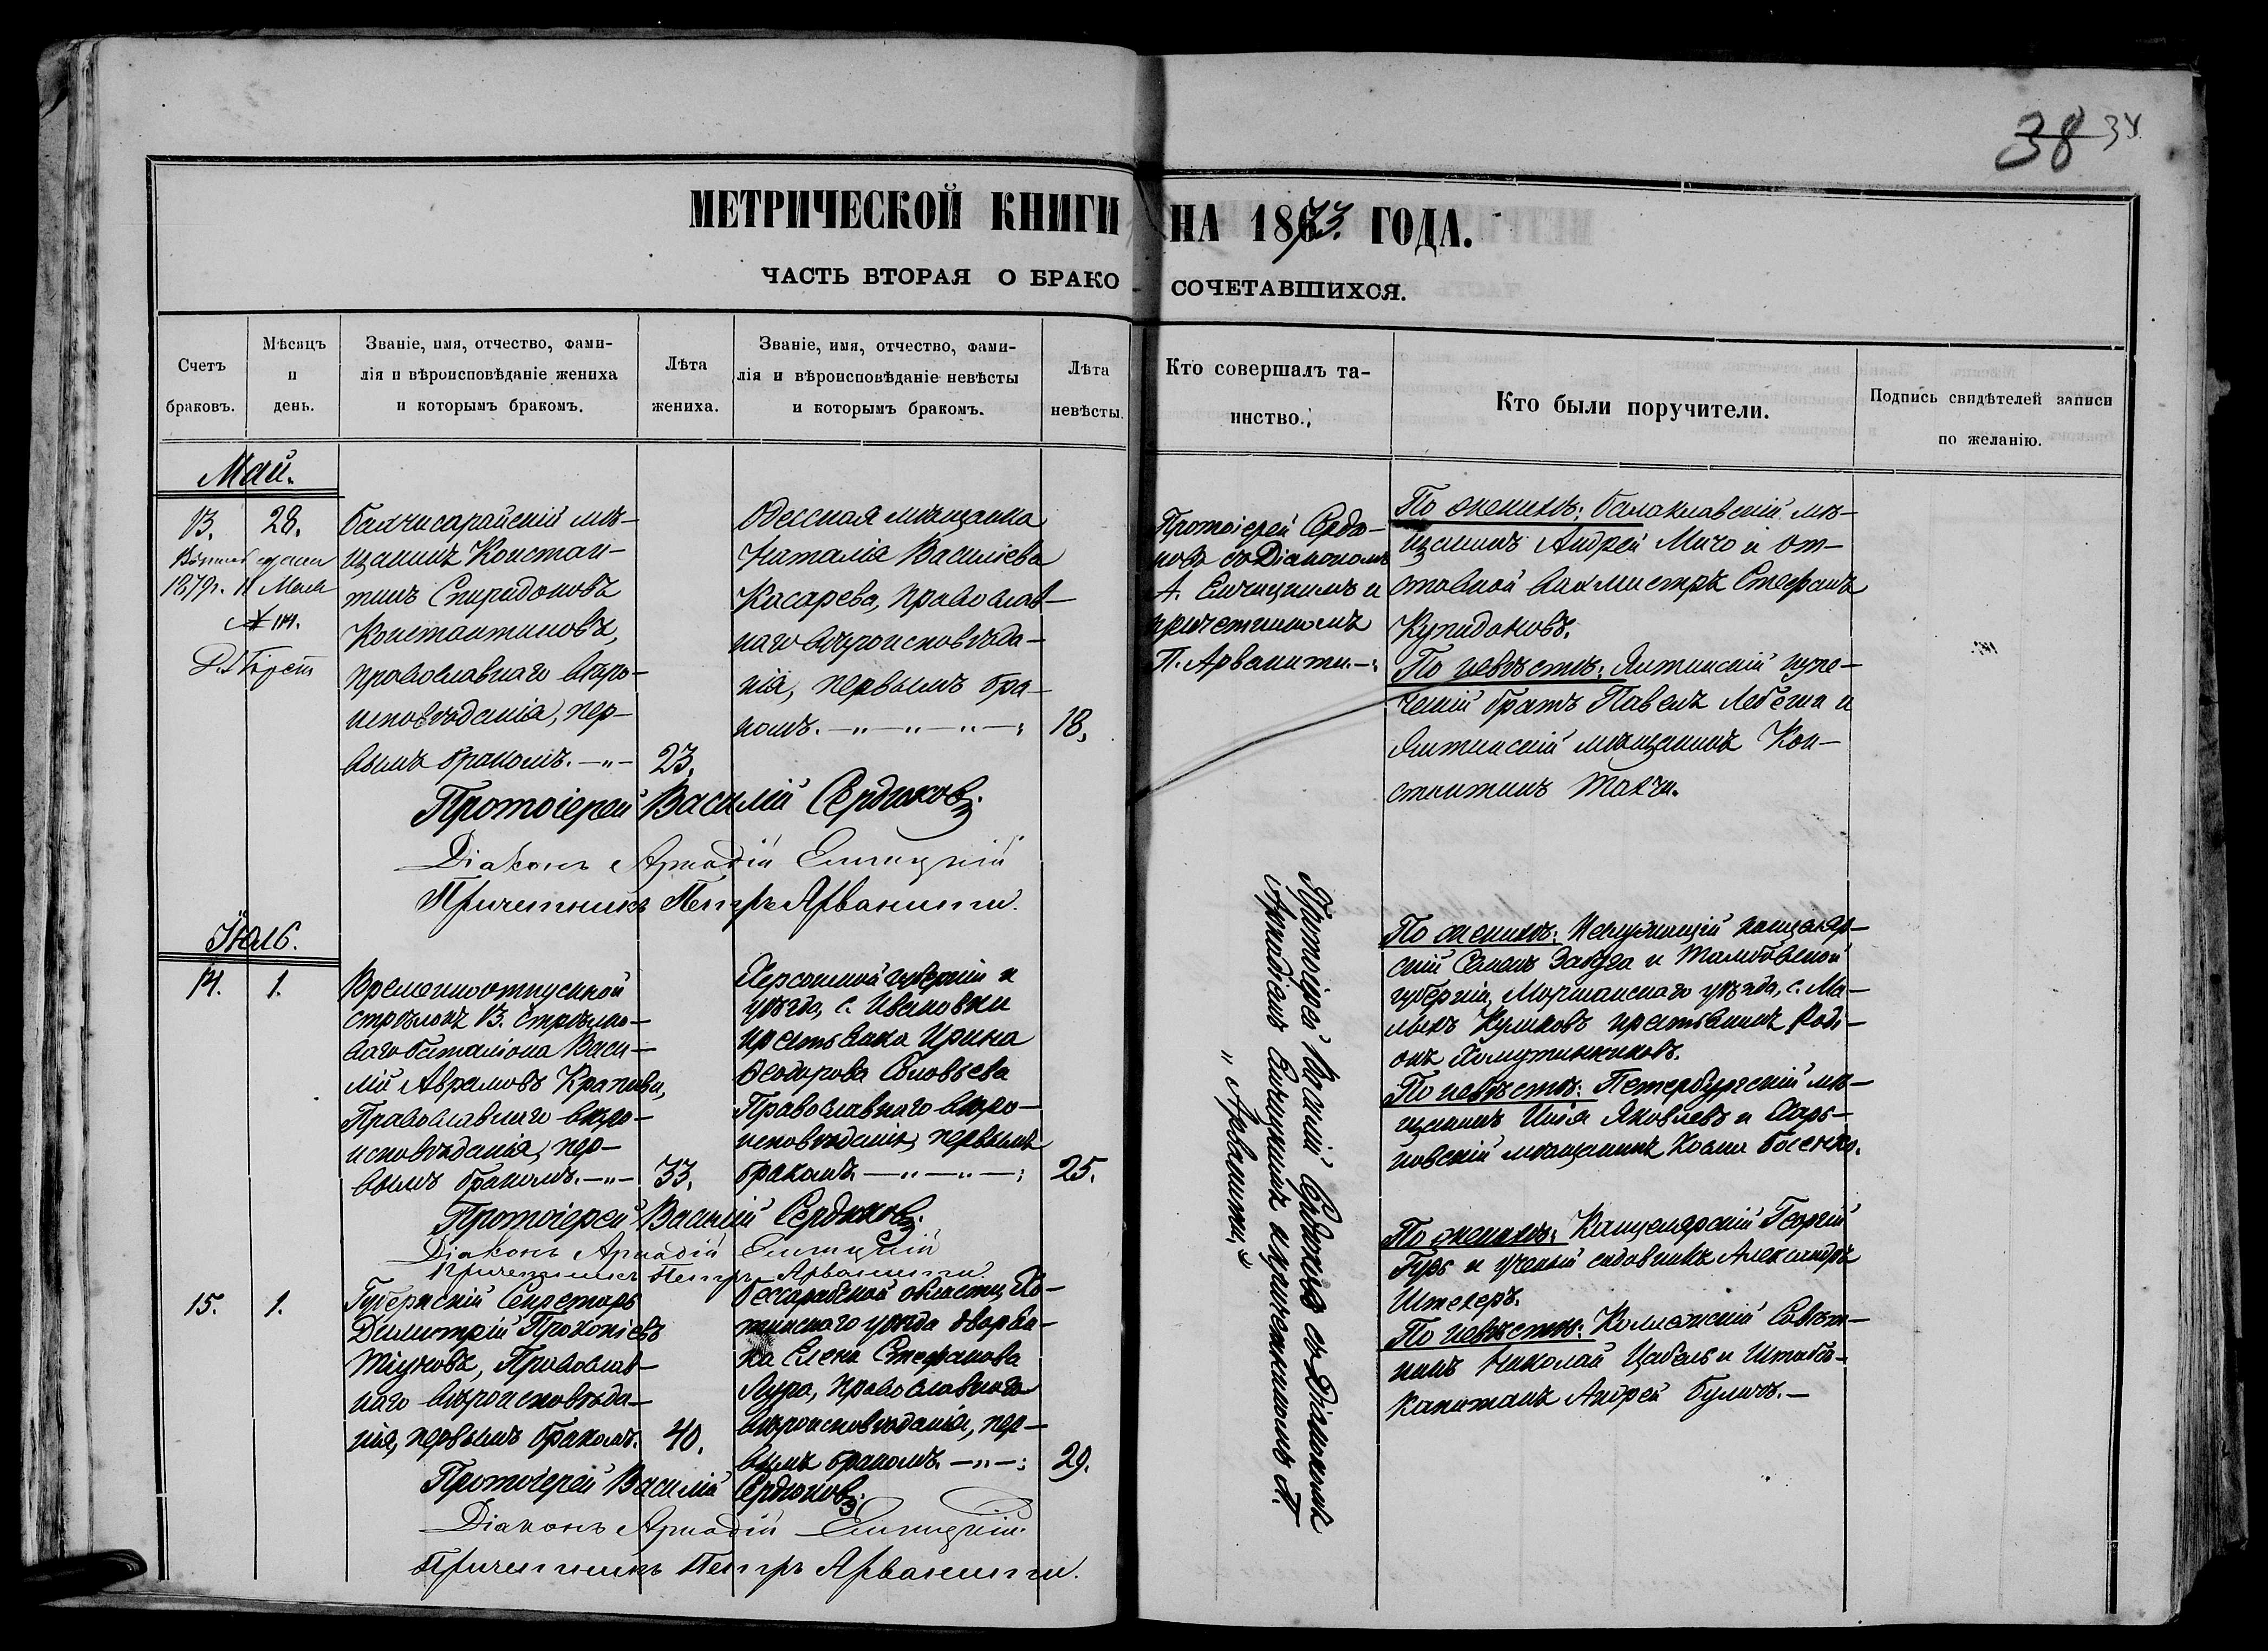 38 34
МЕТРИЧЕСКОЙ КНИГИ НА 1873. ГОДА.
ЧАСТЬ ВТОРАЯ О БРАКО СОЧЕТАВШИХСЯ.
Счетъ браковъ.
Мѣсяцъ и день.
Званіе, имя, отчество, фами-
лія и вѣроисповѣданіе жениха
и которымъ бракомъ.
Лѣта жениха.
Званіе, имя, отчество, фами-
лія и вѣроисповѣданіе невѣсты
и которымъ бракомъ.
Лѣта невѣсты.
Кто совершалъ та-
инство.
Кто были поручители.
Подпись свидѣтелей записи
по желанію.
Май.
13. 28.
1879г. 11 Мая
№ 114.
Бахчисарайскій мѣ-
щанинъ Констан-
тинъ Спиридоновъ
Константиновъ,
православнаго вѣро-
исповѣданія, пер-
вымъ бракомъ. —„—
23.
Одесская мѣщанка
Наталія Васильева
Касарева, православ-
наго вѣроисповѣда-
нія, первымъ бра-
комъ. —„—„—„—;
18.
Протоіерей Сердю-
ковъ съ Діакономъ
А. Енчицкимъ и
причетникомъ
П. Арванити.—;
По женихѣ: балаклавскій мѣ-
щанинъ Андрей Мичо и от-
ставной вахмистръ Стефанъ
Купидоновъ.
По невѣстѣ: Ялтинскій купе-
ческій братъ Павелъ Лебеши и
Ялтинскій мѣщанинъ Кон-
стантинъ Такчи.
Протоіерей Василій Сердюковъ.
Діаконъ Аркадій Енчицкій
Причетникъ Петръ Арванити.
Іюль.
14. 1.
Временноотпускной
стрѣлокъ 13. стрѣлко-
ваго баталіона Васи-
лій Аврамовъ Крапива,
Православнаго вѣро-
исповѣданія, пер-
вымъ бракомъ. —„—
33.
Херсонской губерніи и
уѣзда, с. Ивановки
крестьянка Ирина
Ѳеодорова Соловьева
Православнаго вѣро-
исповѣданія, первымъ
бракомъ. —„—„—;
25.
Протоіерей Василій Сердюковъ съ Діакономъ
Аркадіемъ Енчицкимъ и причетникомъ П.
„ Арванити. „
По женихѣ: Неслужащій канцеляр-
скій Семенъ Забуга и Тамбовской
губерніи, Моршанскаго уѣзда, с. Ма-
лыхъ Куликовъ крестьянинъ Роді-
онъ Хомутинниковъ.
По невѣстѣ: Петербургскій мѣ-
щанинъ Илія Яковлевъ и Харь-
ковскій мѣщанинъ Косма Босенко.
Протоіерей Василій Сердюковъ.
Діаконъ Аркадій Енчицкій
Причетникъ Петръ Арванити
15. 1.
Губернскій Секретарь
Димитрій Прокопіевъ
Православ-
наго вѣроисповѣда-
нія, первымъ бракомъ.
40.
Бессарабской области, Хо-
тинскаго уѣзда дворян-
ка Елена Стефанова
Лура, православнаго
вѣроисповѣданія, пер-
вымъ бракомъ. —„—;
29.
По женихѣ: Канцелярскій Георгій
Гузь и ученый садовникъ Александръ
Штекеръ.
По невѣстѣ: Коллежскій Совѣт-
никъ Николай Цабель и Штабсъ-
Капитанъ Андрей Булычъ.—
Протоіерей Василій Сердюковъ.
Діаконъ Аркадій Енчицкій.
Причетникъ Петръ Арванити.